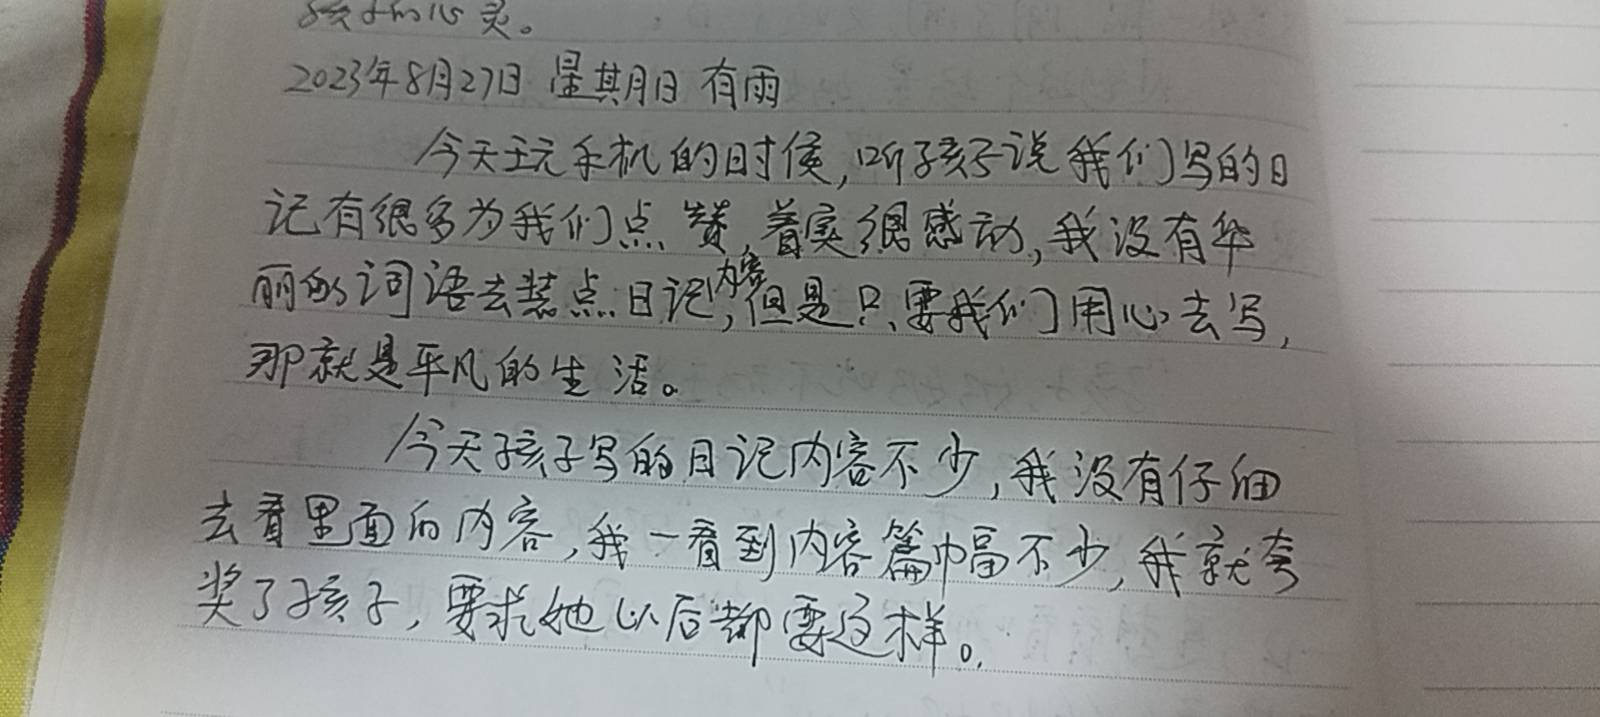 孩子的心灵。
2023年8月27日 星期日 有雨
今天玩手机的时候,听孩子说我们写的日
记有很多为我们点赞,着实很感动,我没有华
丽的词语去装点日记内容,但是只要我们用心去写,
那就是平凡的生活。
今天孩子写的日记内容不少,我没有仔细
去看里面的内容,我一看到内容篇幅不少,我就夸
奖了孩子,要求她以后都要这样。